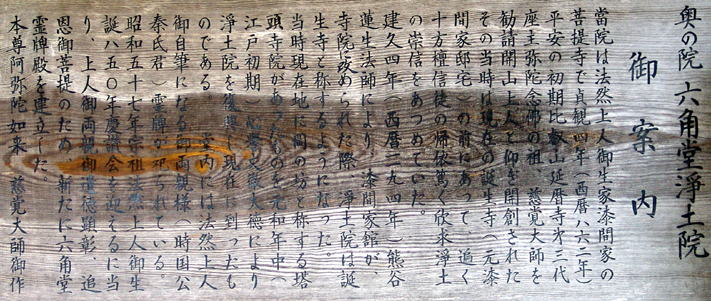 奥の院 六角堂淨土院
御案内
當院は法然上人御生家漆間家の
菩提寺で貞観四年（西暦八六二年）
平安の初期比叡山延暦寺第三代
座主弥陀念佛の祖、慈覚大師を
勧請開山上人と仰ぎ開創された
その当時は現在の誕生寺（元漆
間家邸宅）の前にあって、追く
十方種信徒の帰依篤く欣求淨土
の崇信をあつめていた。
建久四年（西暦一一九四年）熊谷
蓮生法師により、漆間家館が、
寺院に改められた際、淨土院は誕
生寺と称するようになった。
当時現在地に岡の坊と称する塔
頭寺院があったものを元和年中（
江戸初期）大德により
淨土院を復興し現在に到ったも
のである。堂内には法然上人
御自筆になる御両親様（時国公
秦氏君）霊牌が祀られている。
昭和五十七年宗祖法然上人御生
誕八五〇年慶讃会を迎えるに当
り、上人御両親御遺徳顕彰、追
恩御菩提のため、新たに六角堂
霊牌殿を建立した。
本尊阿弥陀如来 慈覚大師御作